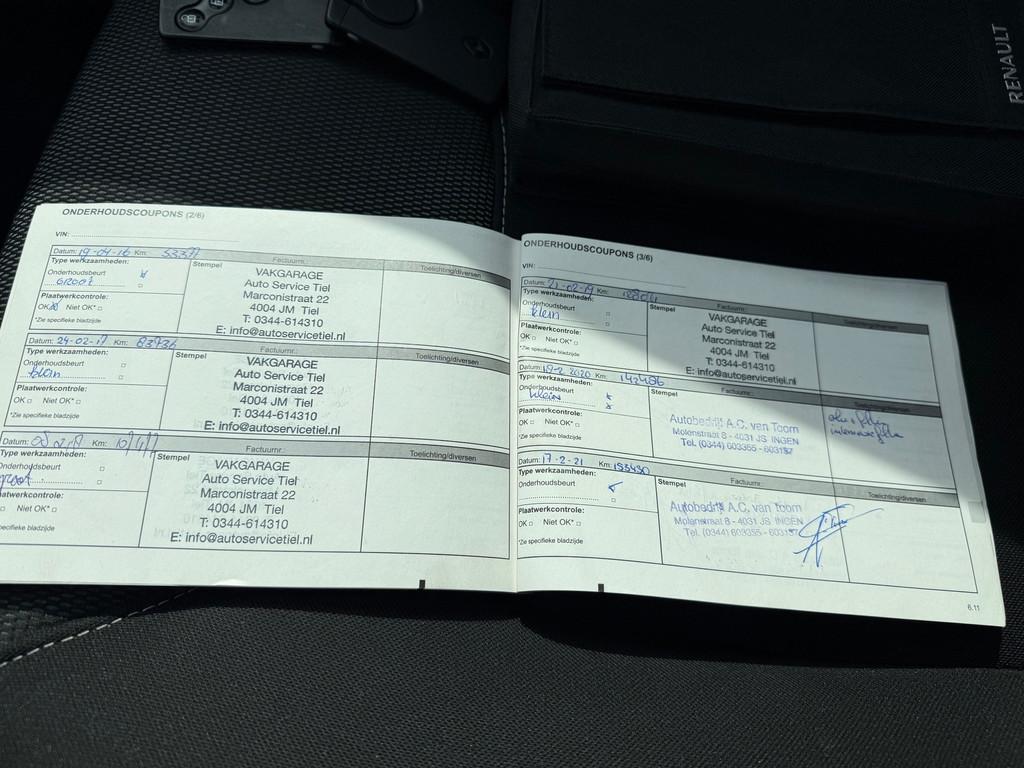 RENAULT
ONDERHOUDSCOUPONS (2/6)
VIN:
Datum: 19-04-16 Km: 53377 Factuurnr.:
Type werkzaamheden: Stempel Toelichting/diversen
Onderhoudsbeurt
Groot
Plaatwerkcontrole:
OK Niet OK*
*Zie specifieke bladzijde
VAKGARAGE
Auto Service Tiel
Marconistraat 22
4004 JM Tiel
T: 0344-614310
E: info@autoservicetiel.nl
Datum: 24-02-17 Km: 83736 Factuurnr.:
Type werkzaamheden: Stempel Toelichting/diversen
Onderhoudsbeurt
klein
Plaatwerkcontrole:
OK Niet OK*
*Zie specifieke bladzijde
VAKGARAGE
Auto Service Tiel
Marconistraat 22
4004 JM Tiel
T: 0344-614310
E: info@autoservicetiel.nl
Datum: Km: Factuurnr.:
Type werkzaamheden: Stempel Toelichting/diversen
Onderhoudsbeurt
groot
Plaatwerkcontrole:
Niet OK*
*Zie specifieke bladzijde
VAKGARAGE
Auto Service Tiel
Marconistraat 22
4004 JM Tiel
T: 0344-614310
E: info@autoservicetiel.nl
ONDERHOUDSCOUPONS (3/6)
VIN:
Datum: 21-02-19 Km: Factuurnr.:
Type werkzaamheden: Stempel Toelichting/diversen
Onderhoudsbeurt
klein
Plaatwerkcontrole:
OK Niet OK*
*Zie specifieke bladzijde
VAKGARAGE
Auto Service Tiel
Marconistraat 22
4004 JM Tiel
T: 0344-614310
E: info@autoservicetiel.nl
Datum: 19-2 2020 Km: 142486 Factuurnr.:
Type werkzaamheden: Stempel Toelichting/diversen
Onderhoudsbeurt
klein
Plaatwerkcontrole:
OK Niet OK*
*Zie specifieke bladzijde
Autobedrijf A.C. van Toorn
Molenstraat 8 - 4031 JS INGEN
Tel. (0344) 603355 - 603157
Datum: 17-2-21 Km: 153430 Factuurnr.:
Type werkzaamheden: Stempel Toelichting/diversen
Onderhoudsbeurt
Plaatwerkcontrole:
OK Niet OK*
*Zie specifieke bladzijde
Autobedrijf A.C. van Toorn
Molenstraat 8 - 4031 JS INGEN
Tel. (0344) 603355 - 603157
6.11